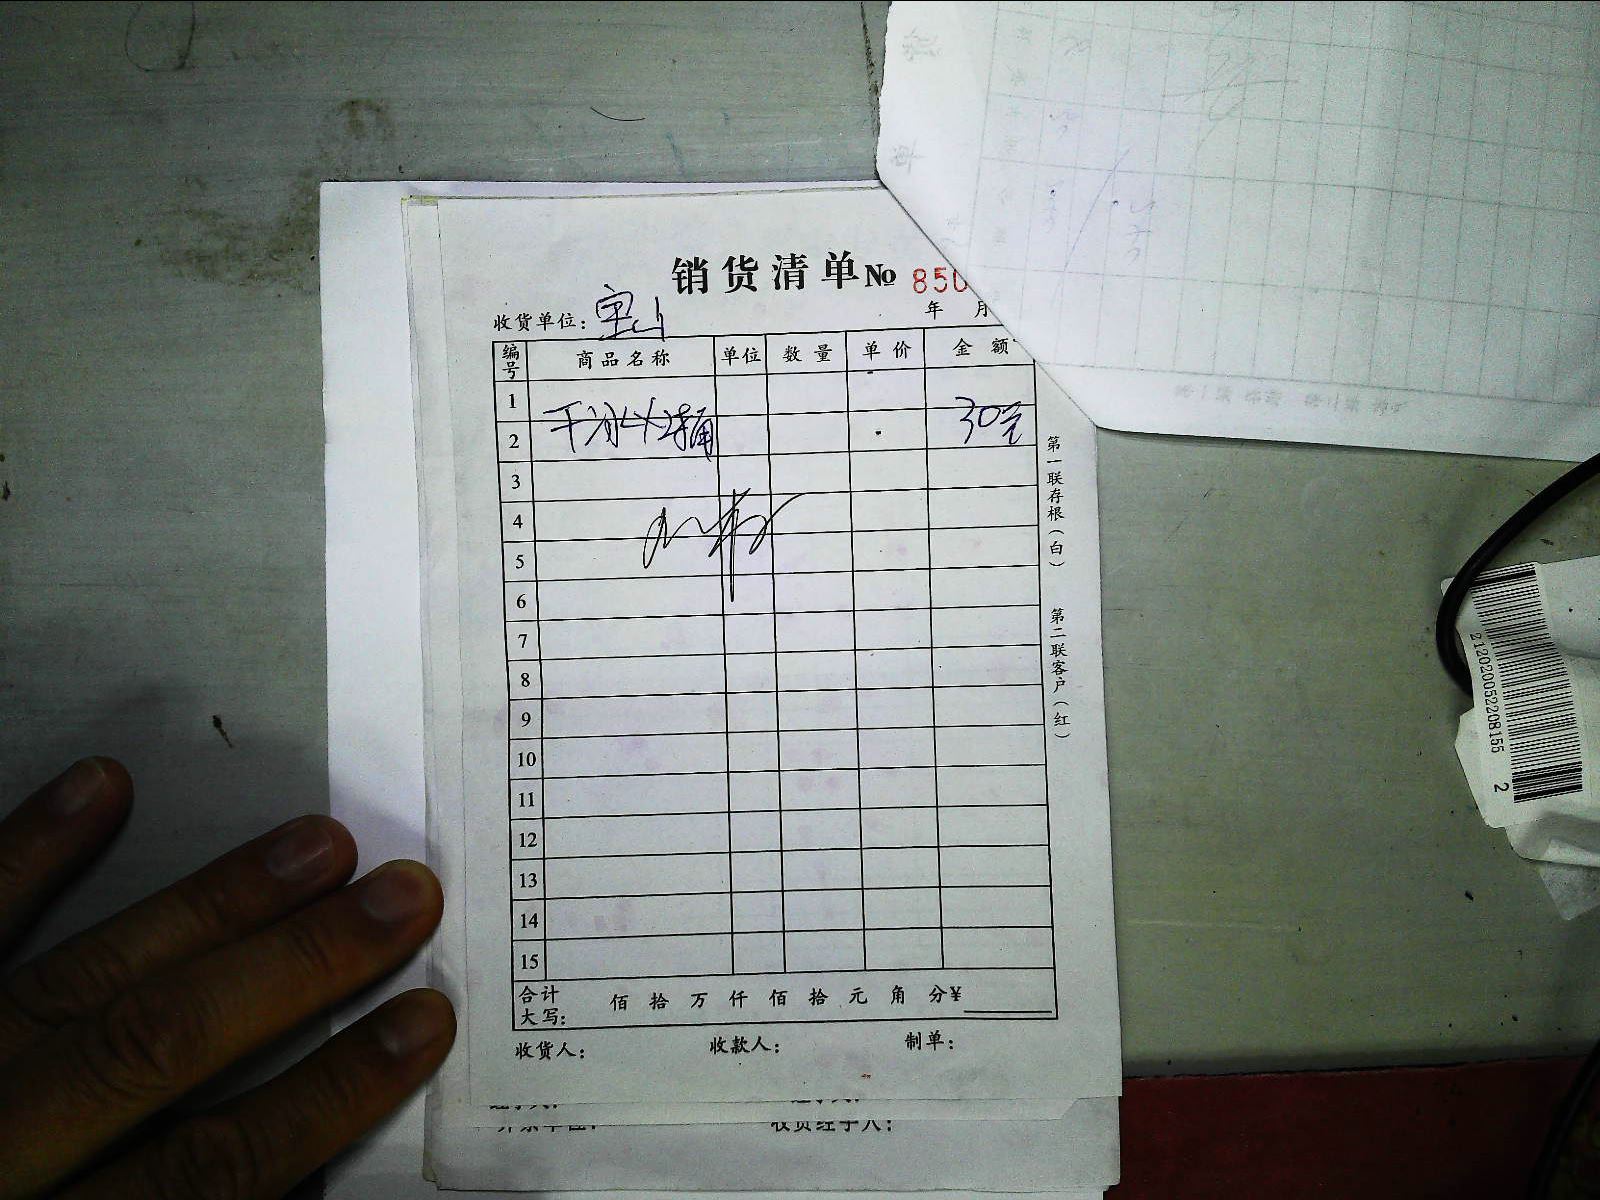 销货清单 № 850
收货单位: 宝山 年 月
编号 商品名称 单位 数量 单价 金额
1
2 30元
3
4
5
6
7
8
9
10
11
12
13
14
15
合计大写: 佰 拾 万 仟 佰 拾 元 角 分 ¥
收货人: 收款人: 制单:
第一联存根(白) 第二联客户(红)
收货经手人:
2120200522208155 2